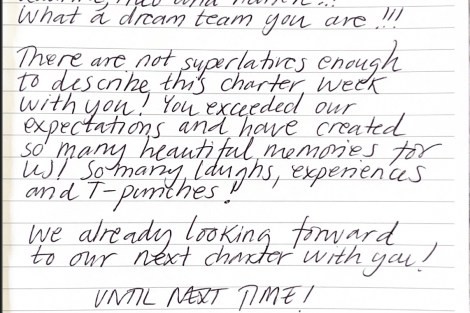 What a dream team you are!!!
There are not superlatives enough
to describe this charter week
with you! You exceeded our
expectations and have created
so many beautiful memories for
us! So many laughs, experiences
and T-punches!
We already looking forward
to our next charter with you!
UNTIL NEXT TIME!